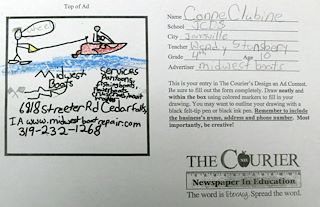 Top of Ad
Midwest
Boats
Services
Pontoons,
6818 Streeter Rd Cedar falls,
IA www.midwestboatrepair.com
319-232-1268
Name Conne Clubine
School JCES
City Janesville
Teacher Wendy Stunsberg
Grade 4th Age 10
Advertiser midwest boats
This is your entry in The Courier's Design an Ad Contest.
Be sure to fill out the form completely. Draw neatly and
within the box using colored markers to fill in your
drawing. You may want to outline your drawing with a
black felt-tip pen or black ink pen. Remember to include
the business's name, address and phone number. Most
importantly, be creative!
THE COURIER
Newspaper In Education
The word is literacy. Spread the word.